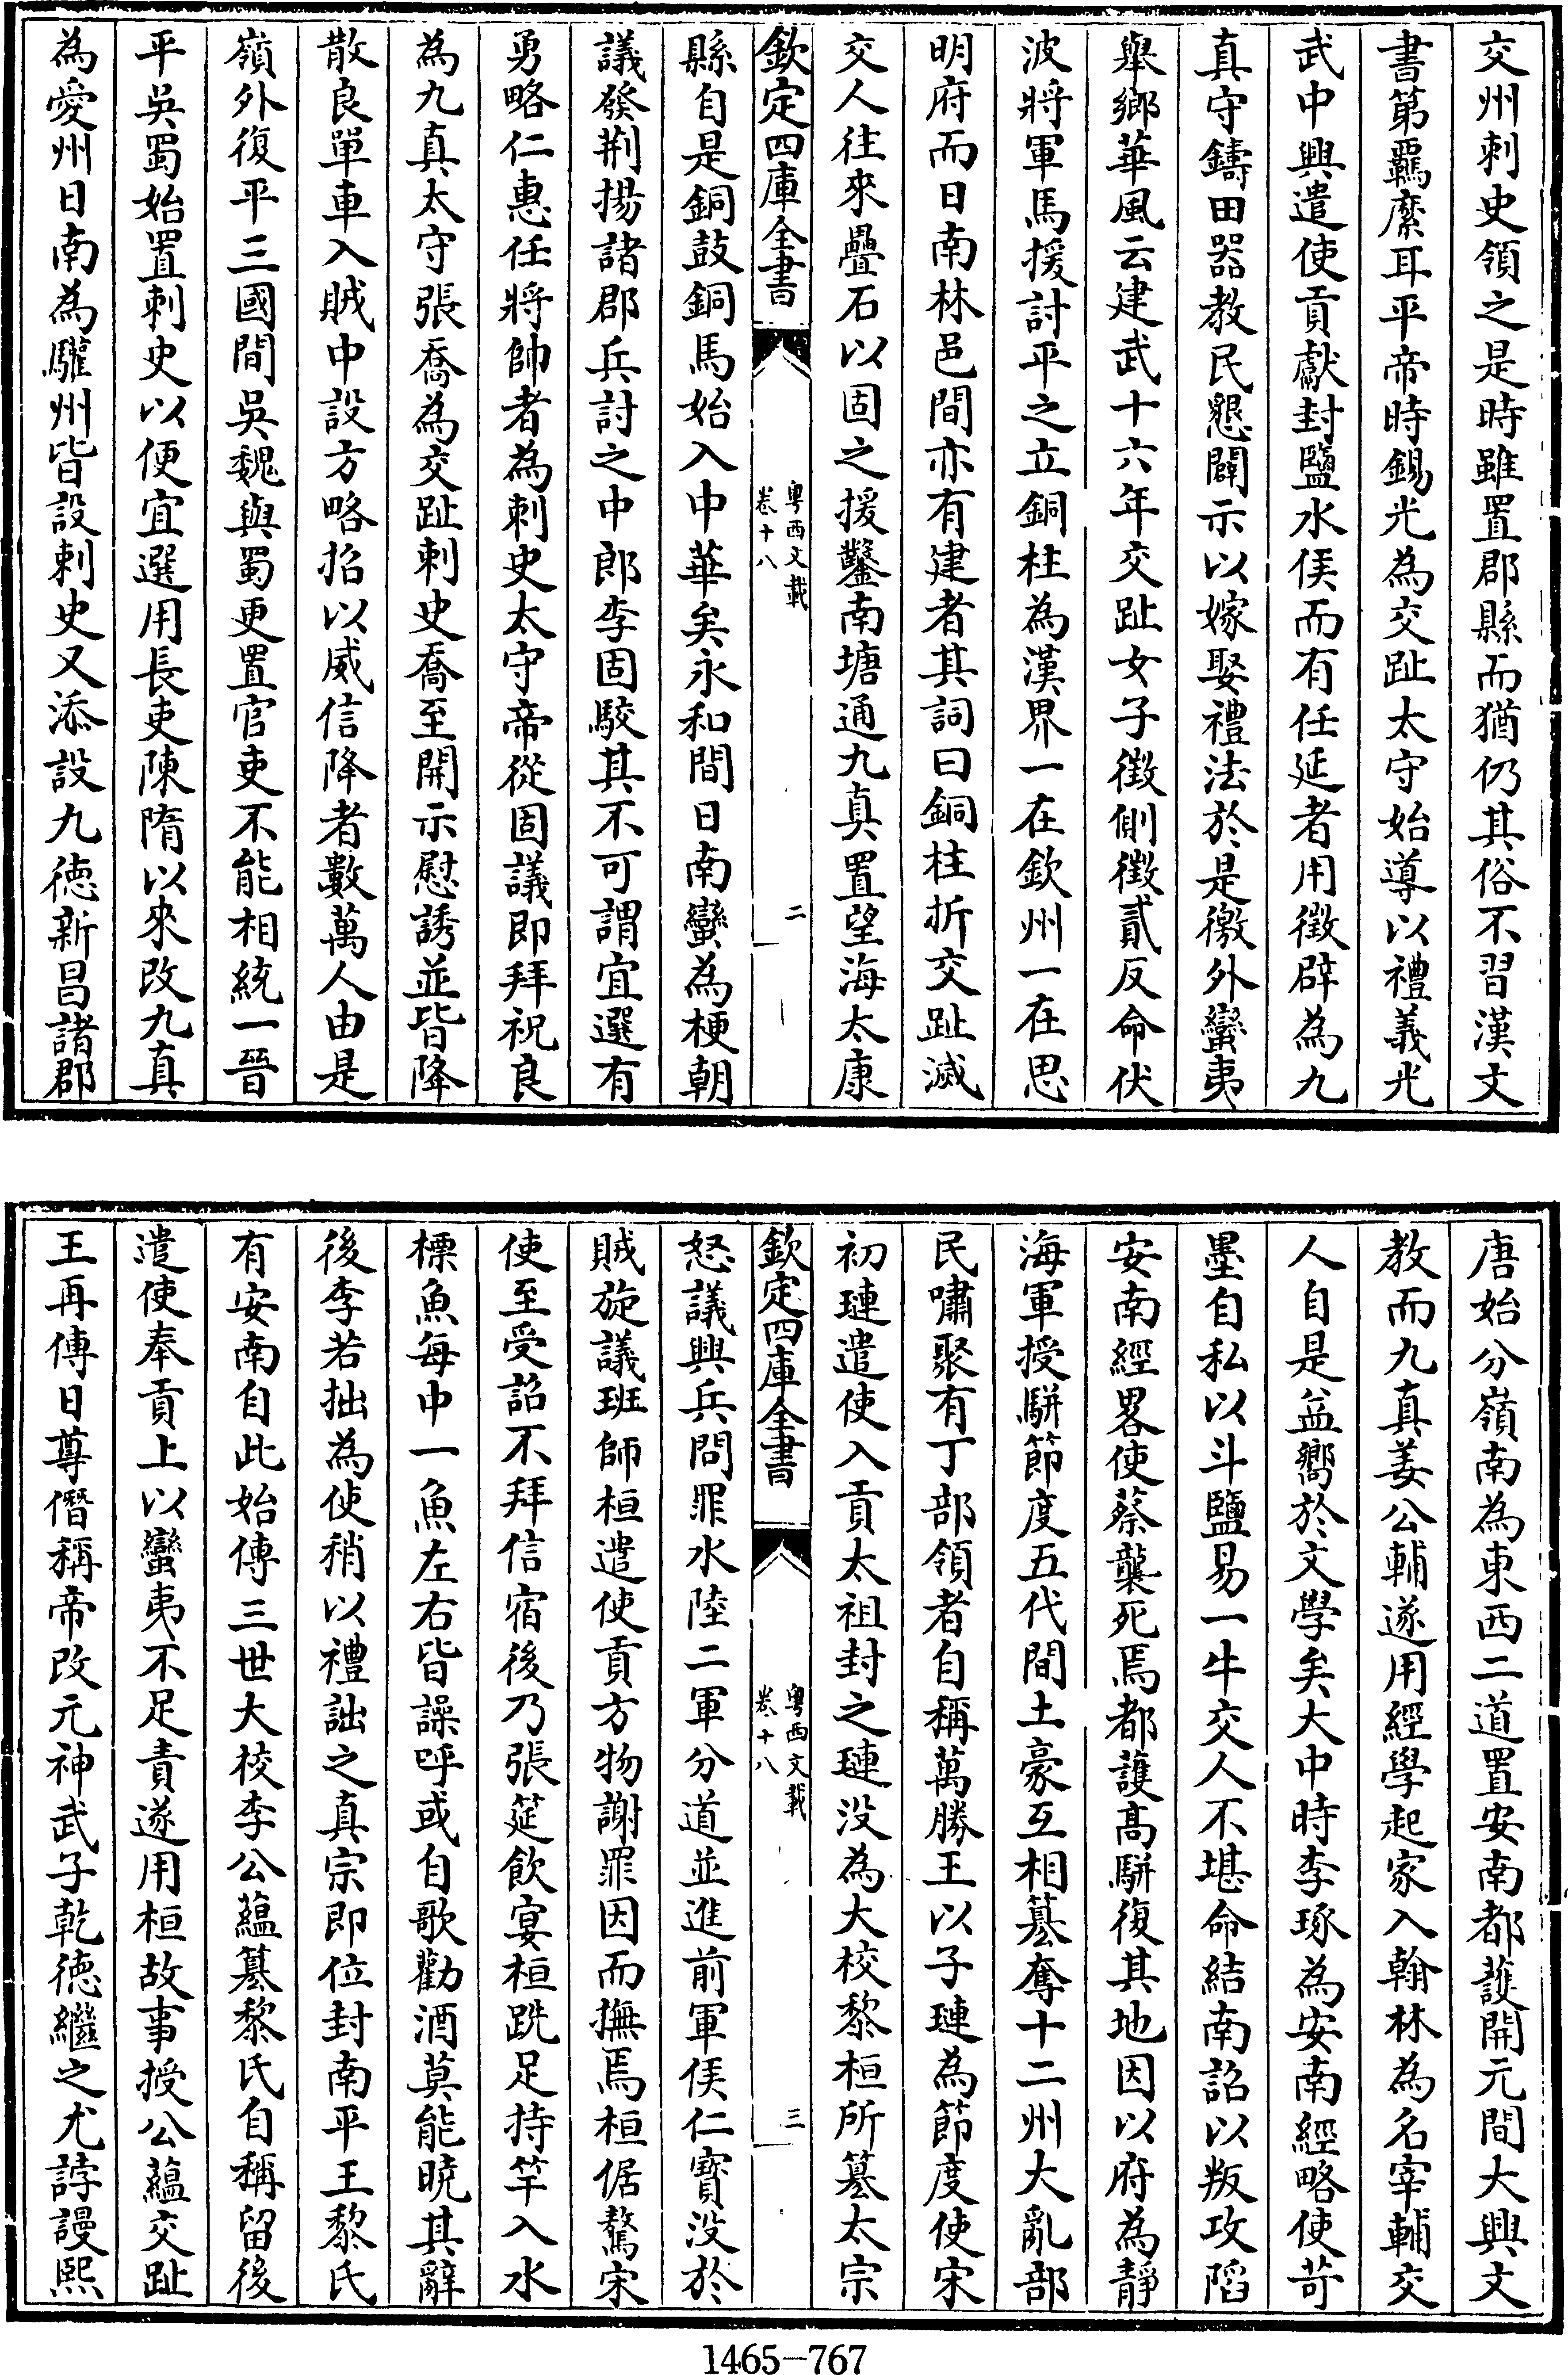 交州刺史領之是時雖置郡縣而猶仍其俗不習漢文
書第羈縻耳平帝時錫光為交趾太守始導以禮義光
武中興遣使貢獻封鹽水侯而有任延者用徵辟為九
真守鑄田器教民懇闢示以嫁娶禮法於是徼外蠻夷
舉鄉華風云建武十六年交趾女子徵側徵貳反命伏
波將軍馬援討平之立銅柱為漢界一在欽州一在思
明府而日南林邑間亦有建者其詞曰銅柱折交趾滅
交人往來疊石以固之援鑿南塘通九真置望海太康
欽定四庫全書
粵西文載
卷十八
二
縣自是銅鼓銅馬始入中華矣永和間日南蠻為梗朝
議發荆揚諸郡兵討之中郎李固駮其不可謂宜選有
勇略仁惠任將帥者為刺史太守帝從固議即拜祝良
為九真太守張喬為交趾刺史喬至開示慰誘並皆降
散良單車入賊中設方略招以威信降者數萬人由是
嶺外復平三國間吳魏與蜀更置官吏不能相統一晉
平吳蜀始置刺史以便宜選用長吏陳隋以來改九真
為愛州日南為驩州皆設刺史又添設九德新昌諸郡
唐始分嶺南為東西二道置安南都護開元間大興文
教而九真姜公輔遂用經學起家入翰林為名宰輔交
人自是益嚮於文學矣大中時李琢為安南經略使苛
墨自私以斗鹽易一牛交人不堪命結南詔以叛攻陷
安南經畧使蔡襲死焉都護高駢復其地因以府為靜
海軍授駢節度五代間土豪互相篡奪十二州大亂部
民嘯聚有丁部領者自稱萬勝王以子璉為節度使宋
初璉遣使入貢太祖封之璉没為大校黎桓所篡太宗
欽定四庫全書
粵西文載
卷十八
三
怒議興兵問罪水陸二軍分道並進前軍侯仁寶没於
賊旋議班師桓遣使貢方物謝罪因而撫焉桓倨驁宋
使至受詔不拜信宿後乃張筵飲宴桓跣足持竿入水
標魚每中一魚左右皆譟呼或自歌勸酒莫能曉其辭
後李若拙為使稍以禮詘之真宗即位封南平王黎氏
有安南自此始傳三世大校李公蘊篡黎氏自稱留後
遣使奉貢上以蠻夷不足責遂用桓故事授公蘊交趾
王再傳日尊僭稱帝改元神武子乾德繼之尤誖謾熙
1465-767